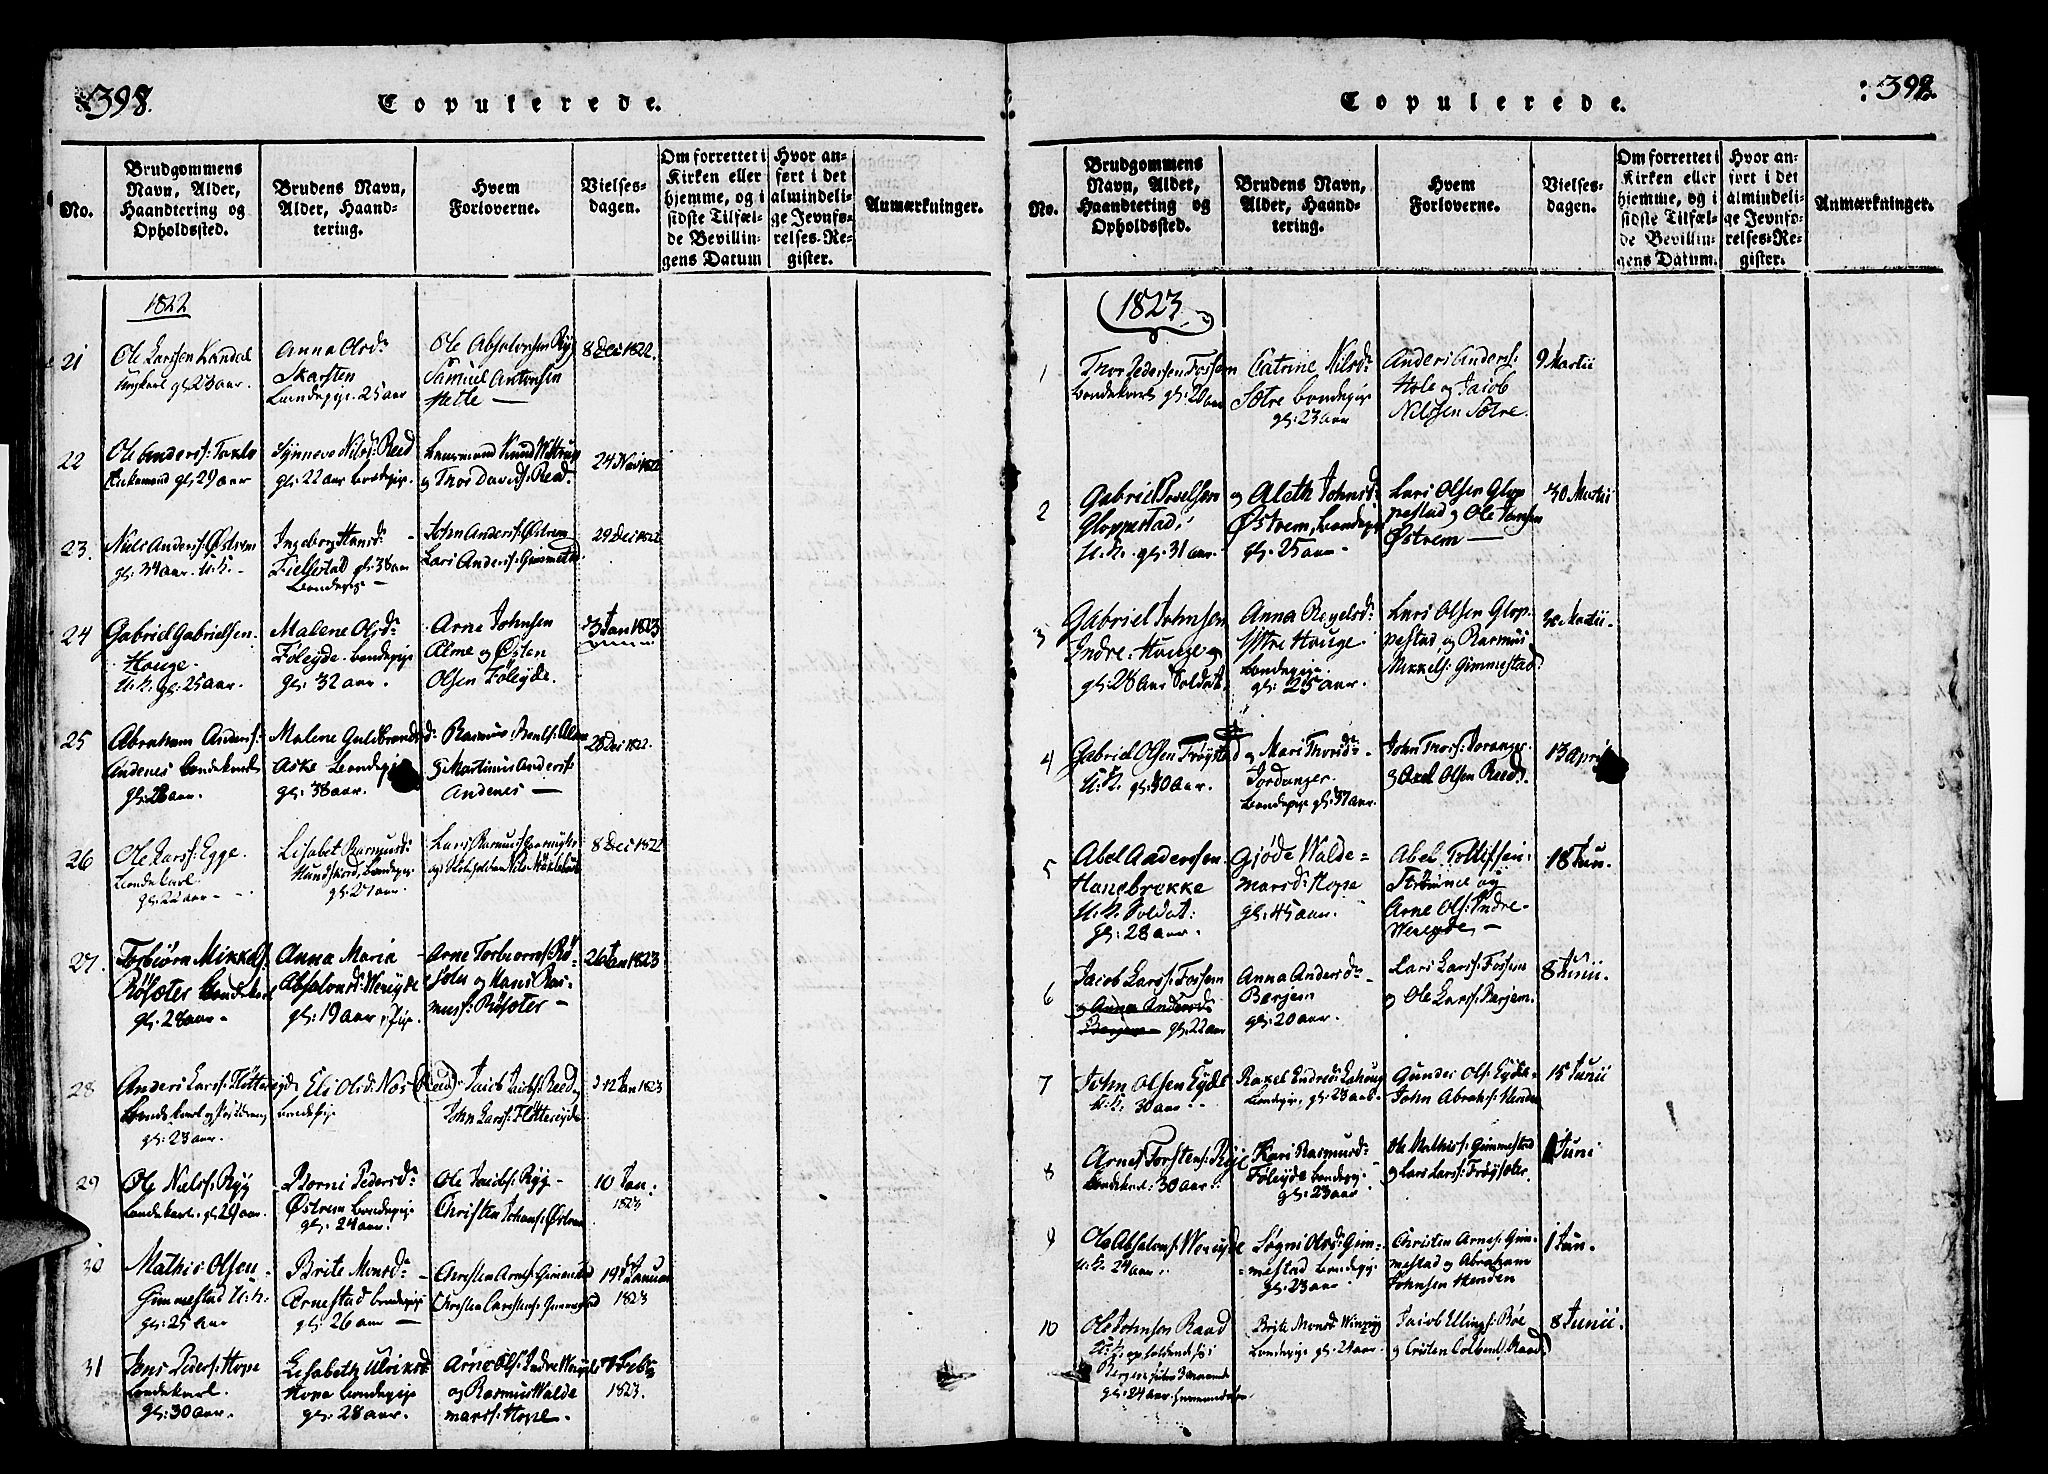 398.
Copulerede.
No.
Brudgommens Navn, Alder, Haandtering og Opholdssted.
Brudens Navn, Alder, Haandtering.
Hvem Forloverne.
Vielsesdagen.
Om forrettet i Kirken eller hjemme, og i sidste Tilfælde Bevillingens Datum
Hvor anført i det almindelige Jevnførelses-Register.
Anmærkninger.
1822
21
Ole Larssen Kandal
Ungkarl gl: 23 aar.
Anna Olsd:
Skarsten
Bondepige. 25 aar
Ole Absalonsen Ryg
Samuel Antonsen
Hette —
8 Dec 1822.
22
Ole Anderss:
Enkemand gl: 29 aar
Synneve Nilsd: Reed
gl: 22 aar Bondepige.
Lensmand Knud
og Thor Davids: Reed.
24 Nov 1822
23.
Niels Anderss: Østrem
gl: 34 aar. U.k. -
Ingeborg Hansd: -
Fiellestad gl: 38 aar
Bondepige —
John Anderss: Østrem
Lars Anderss: Gimmestad
29 Dec 1822
24
Gabriel Gabrielsen.
Houge.
U.k. gl: 25 aar.
Malene Olsd:
Føleyde. bondepige
gl: 32 aar.
Arne Johnsen
Alme og Østen
Olsen Føleyde.
3 Jan 1823
25
Abraham Anderss:
Andenes bondekarl
gl: 28 aar.
Malene Guldbrandsd:
Aske Bondepige
gl: 38 aar.
Rasmus Alme
og Martinus Anderss:
Andenes —
28 Dec 1822.
26
Ole Larss: Egge.
Bondekarl
gl: 22 aar —
Lisabet Rasmusd:
Bondepige
gl: 27 aar.
Lars Rasmuss:
8 Dec 1822
27.
Torbiørn Mikkels:
Røsæter Bondekarl
gl: 28 aar -
Anna Maria
Absalonsd: Wereyde
gl: 19 aar, Pige
Arne Torbiørns: Rø-
sæter og Hans Ras-
muss: Røsæter —
26 Jan 1823
28
Anders Larss: Fløttereyde
gl: 23 aar.
Eli Olsd: Nos (Reed)
Bondepige
Jacob Jacobs: Reed
John Larss: Fløttereyde
12 Jan 1823
29
Ole Niels: Ryg
Bondekarl. gl: 29 aar.
Borni Pedersd:
Østrem bondepige
gl: 24 aar.
Ole Jacobs: Ryg -
Christen Johans: Østrem
10 Jan:
1823
30
Mathis Olsen -
Gimmestad U:k:
gl: 25 Aar
Brite Monsd: -
Arnestad bondepige
gl: 26 aar —
Christen Arnes: Gimmestad
Christen Carstens: Gimmestad
19 Januar
1823
31
Jens Peders: Hope
Bondekarl.
gl: 30 aar.
Lisabeth Ulriksd:
Hope bondepige
gl: 28 aar.
Arne Ols: Indre Wereyde
og Rasmus Walde
marss: Hope.
Feb
1823.
399.
Copulerede.
No.
Brudgommens Navn, Alder, Haandtering og Opholdssted.
Brudens Navn, Alder, Haandtering.
Hvem Forloverne.
Vielsesdagen.
Om forrettet i Kirken eller hjemme, og i sidste Tilfælde Bevillingens Datum.
Hvor anført i det almindelige Jevnførelses-Register.
Anmærkninger.
1823
1
Thor Pedersen Fossem
Bondekarl gl: 20 aar
Catrine Nilsd:
Sætre bondepige
gl: 23 aar
Anders Anderss:
Hole og Jacob
Nilssen Sætre.
9 Martii
2
Gabriel Povelsen
Gloppestad.
U.k. gl: 31 aar.
og Aleth Johnsd:
Østrem, bondepige
gl: 25 aar -
Lars Olsen Glop
pestad og Ole Jansen
Østrem —
30 Martii
3
Gabriel Johnsen
Indre: Houge og
gl: 28 Aar Soldat.
Anna Regelsd:
Yttre Houge.
Bondepige.
gl: 25 aar.
Lars Olsen Glop:
pestad, og Rasmus
Mikkels: Gimmestad.
Martii.
4
Gabriel Olsen Frøystad
U.k. gl: 30 aar.
og Mari Thorsd:
Jordanger.
Bondepige gl: 37 aar.
John Thors: Joranger
og Axel Olsen Reed.
13 April
5
Abel Anderssen
Hanebrekke
U.k. Soldat:
gl: 28 aar.
Gjøde Walde=
marsd: Hope
gl: 45 aar.
Abel Tollefsen:
Strømme og
Arne Ols: Indre-
Wereyde —
18 Jun.
6
Jacob Larss: Fossem
og Anna Andersd:
Berjem — gl: 22 aar
Anna Andersd: -
Berjem
gl: 20 aar.
Lars Larss: Fossem
og Ole Larss: Berjem.
8 Junii.
7
John Olsen Eyde
U.k. 30 aar
Raxel Endresd:
Bondepige, gl: 23 aar.
Gunder Ols: Eyde.
John Abrahs: Henden
15 Junii
8
Arne Torstens:
Bondekarl: 30 Aar.
Kari Rasmusd: -
Føleyde bondepige
gl: 23 aar
Ole Mathiss: Gimmestad
og Lars Larss: Frøysæter.
1 Juni
9
Ole Absalons: Wereyde
U.k. 24 aar.
Søgni Olsd: Gim-
mestad bondepige
gl: 23 aar
Christen Arnes: Gim-
mestad og Abraham
Johnsen Henden
1 Jun.
10
Ole Johnson Raad
U.k. opholdende sig i
Bergen siden 3 maaned
gl: 24 aar.
Brite Monsd:
Bondepige gl: 24 aar.
Jacob Ellings: Bøe
og Cristen Raad
8 Junii.